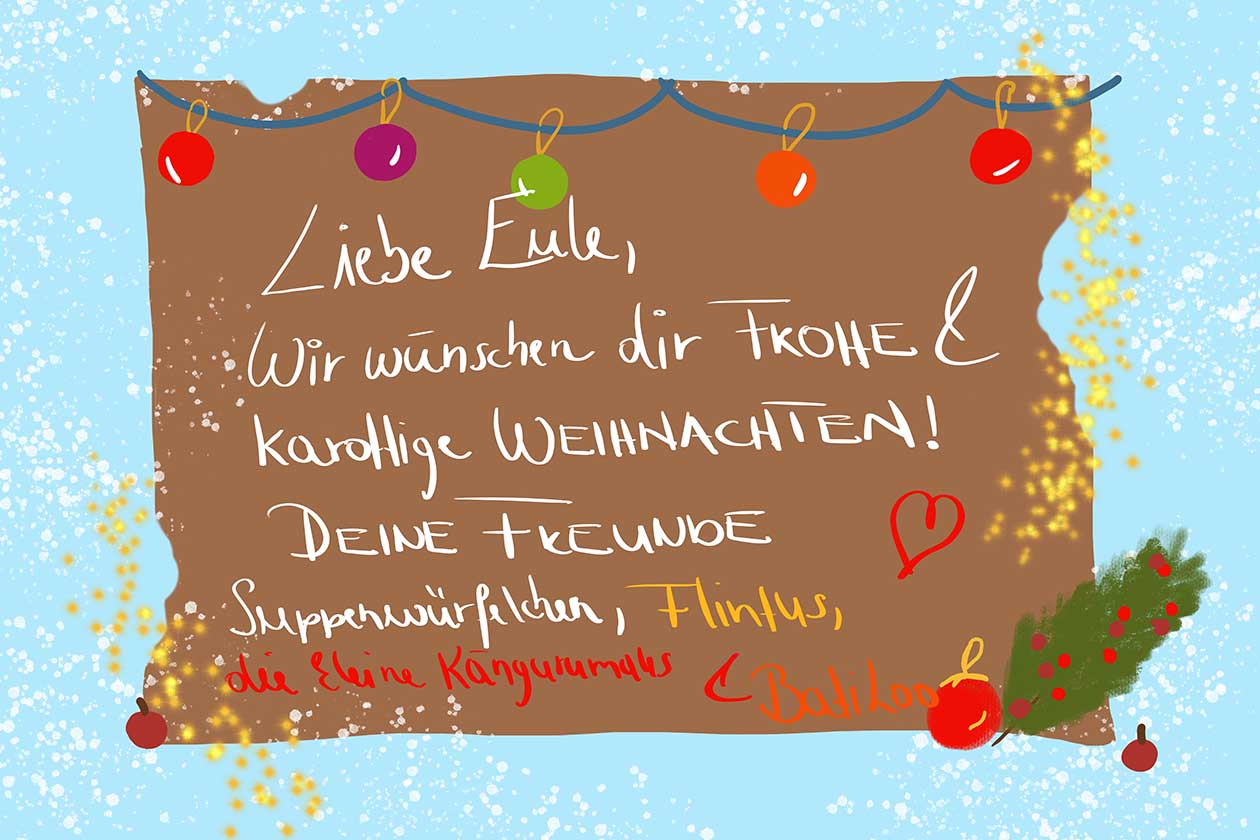 Liebe Eule,
Wir wünschen dir FROHE &
karottige WEIHNACHTEN!
DEINE FREUNDE
Suppenwürfelchen, Flintus,
die kleine Kängurumaus & BaliLoo